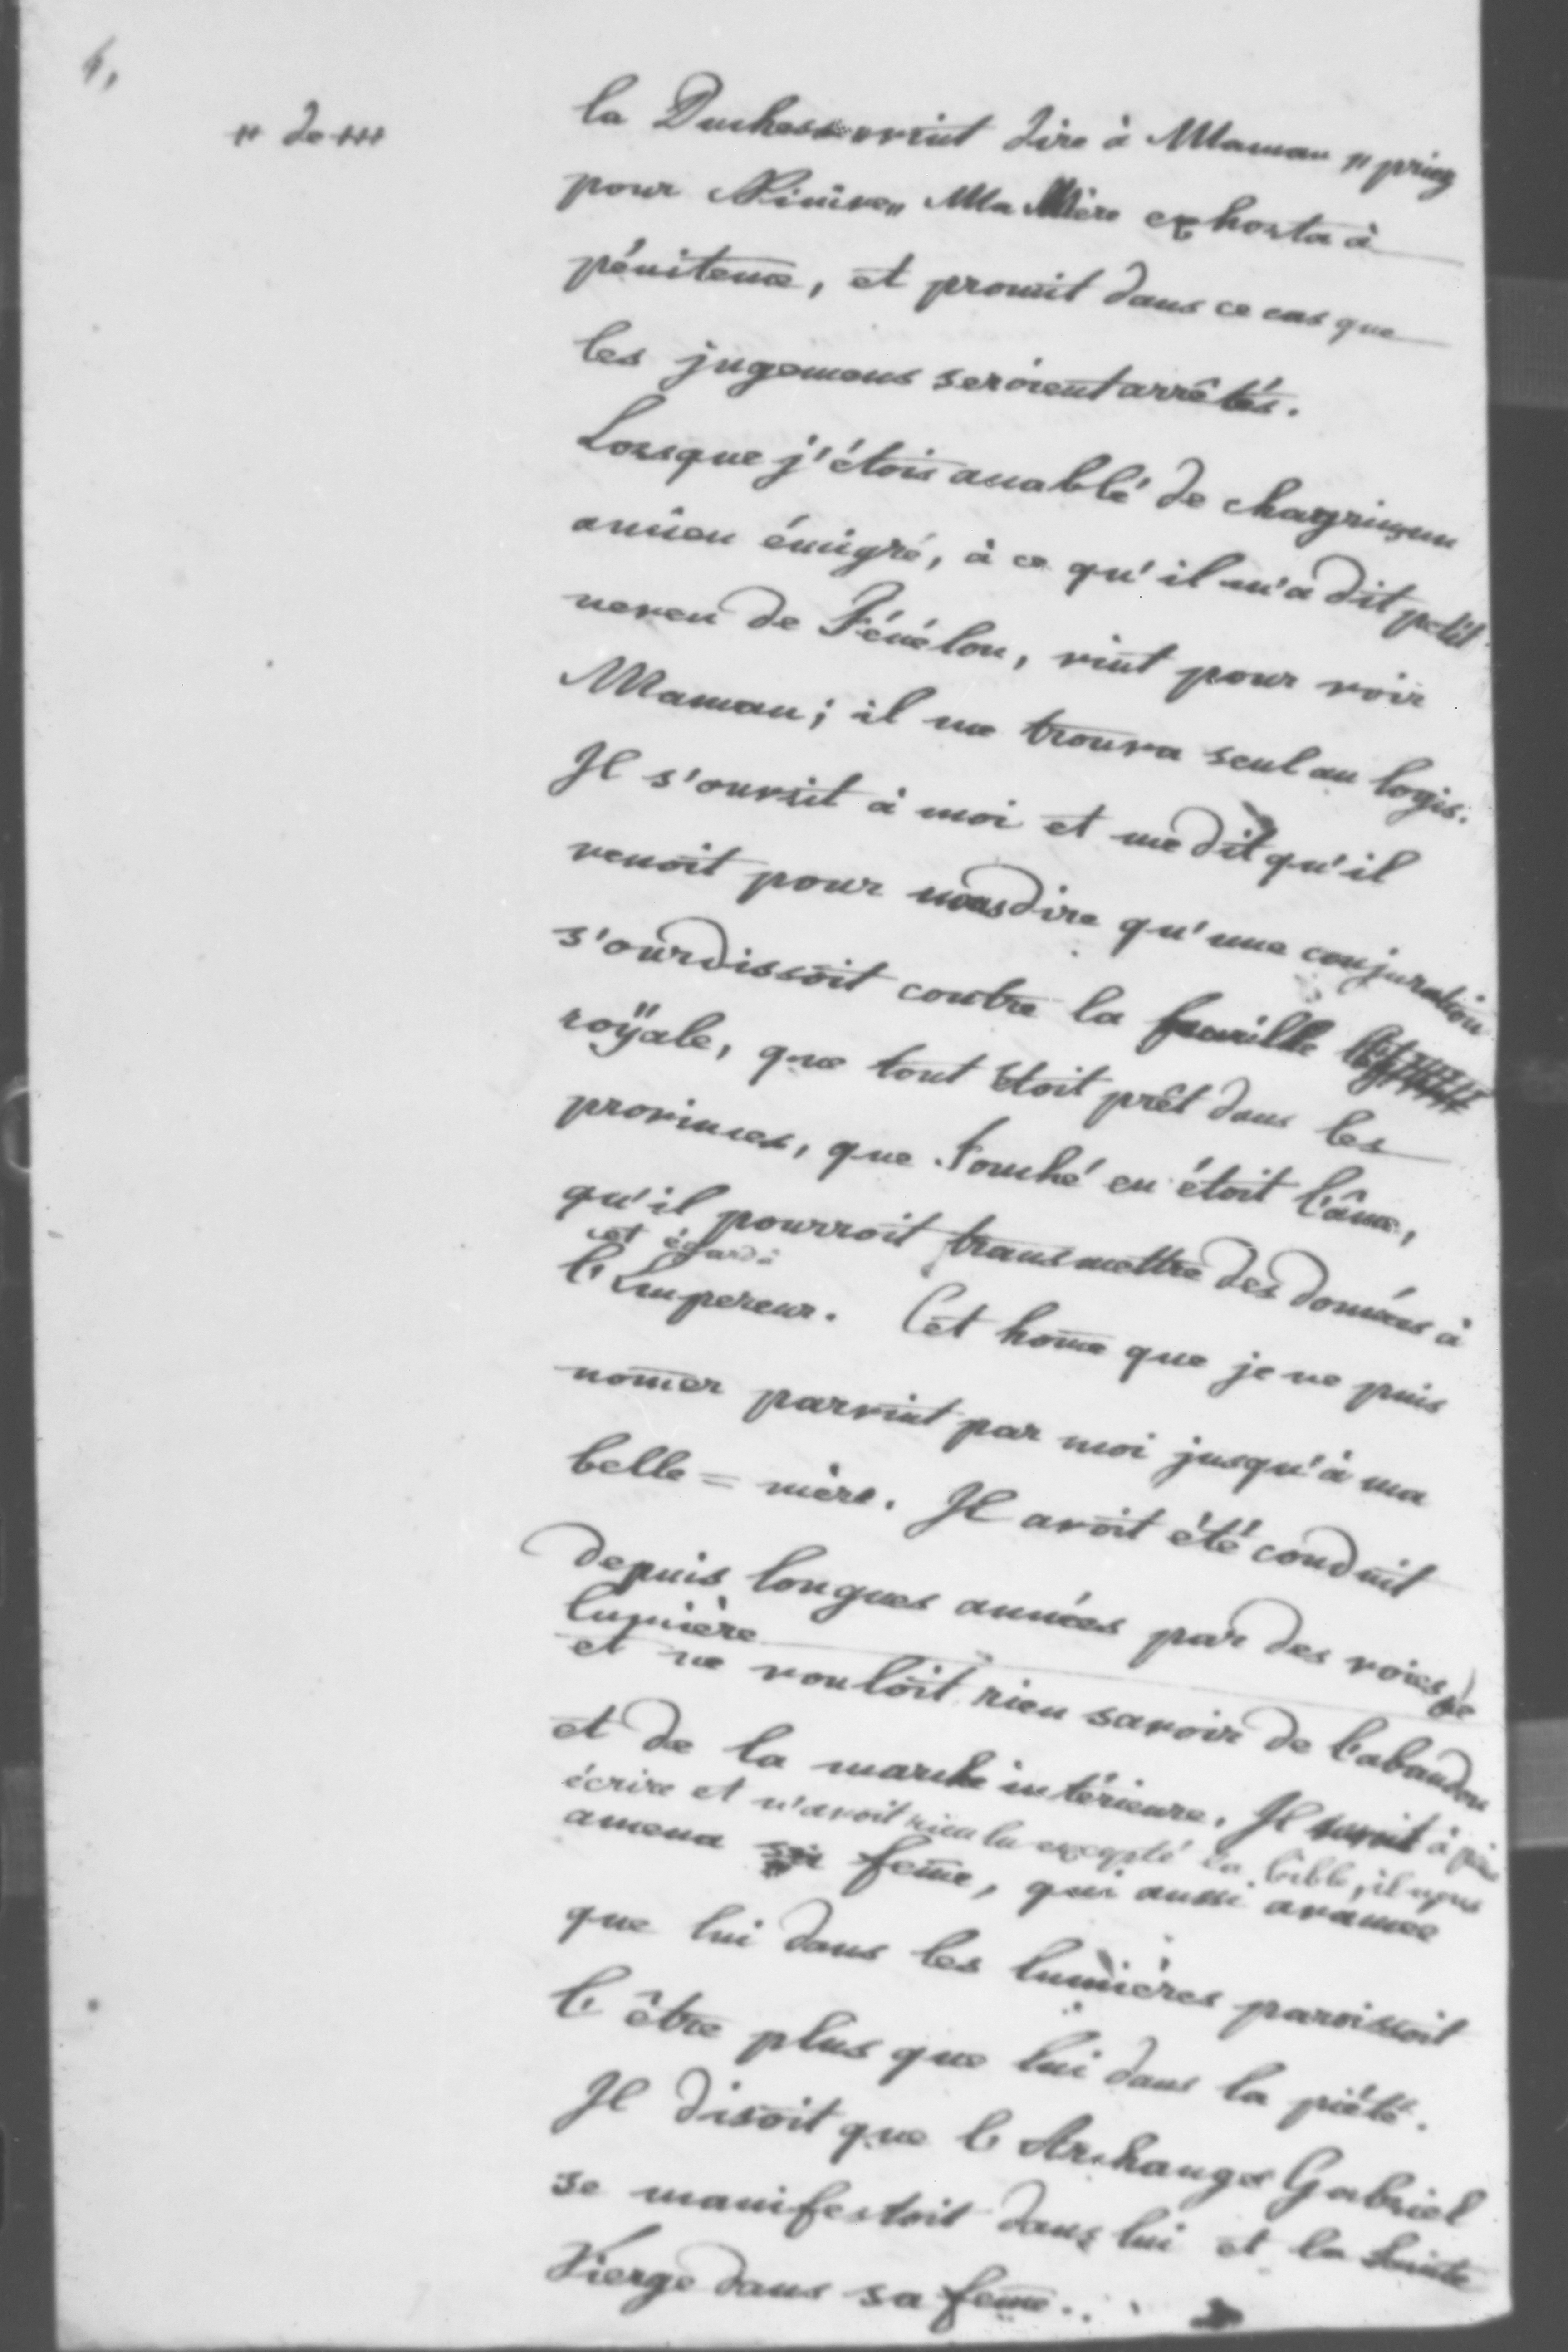 4,
" de +++
la Duchesse vint dire à Maman " priez
pour Ninive " Ma Mère exhorta à
pénitence, et promit dans ce cas que
les jugemens seroient arrêtés.
Lorsque j'étois accablé de chagrins, un
ancien émigré, à ce qu'il m'a dit petit
neveu de Fénélon, vint pour voir
Maman; il me trouva seul au logis.
Il s'ouvrit à moi et me dit qu'il
venoit pour nous dire qu'une conjuration
s'ourdissoit contre la famille
roÿale, que tout étoit prêt dans les
provinces, que Fouché en étoit l'âme,
qu'il pourroit transmettre des données à
et égard à
l'Empereur. Cet home que je ne puis
nomer parvint par moi jusqu'à ma
belle = mère. Il avoit été conduit
depuis longues années par des voies de
lumière
et ne vouloit rien savoir de l'abandon
et de la marche intérieure. Il savoit à peine
écrire et n'avoit rien lu excepté la bible, il nous
amena sa feme, qui aussi avancée
que lui dans les lumières paroissoit
l'être plus que lui dans la piété.
Il disoit que l'Archange Gabriel
se manifestoit dans lui et la Sainte
Vierge dans sa feme.